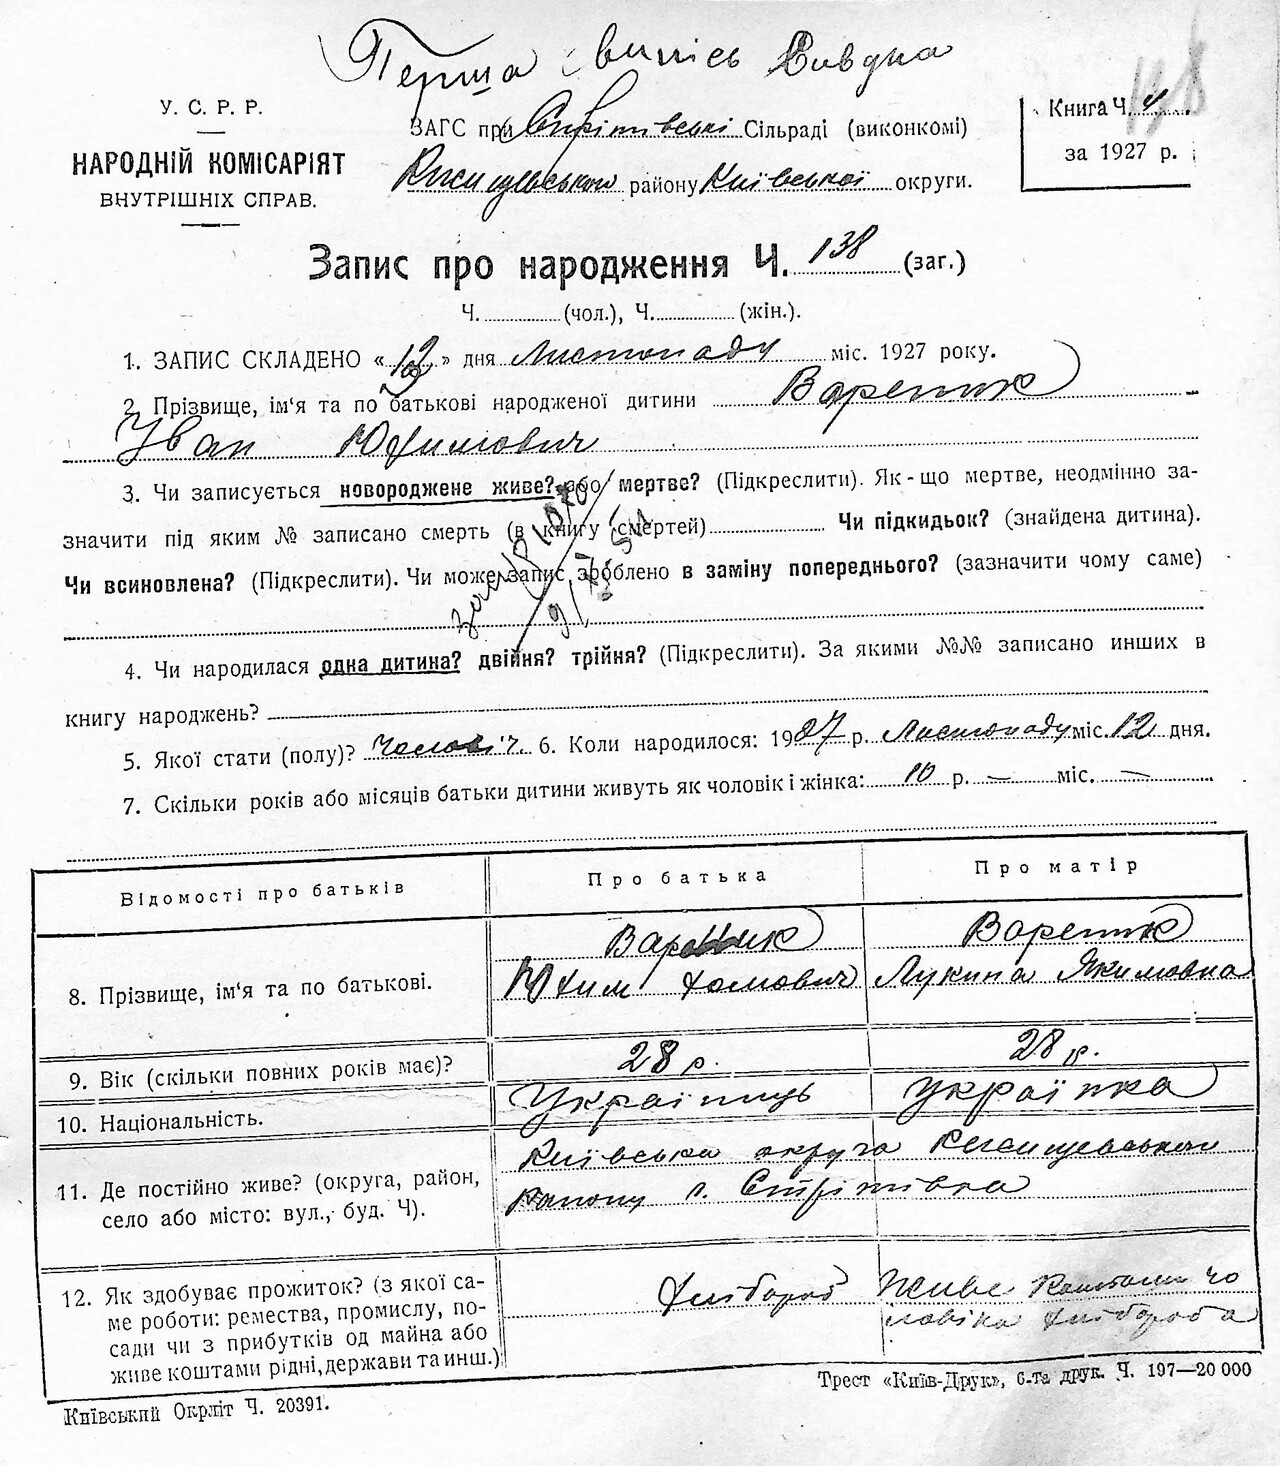 Перша випись видна
У. С. Р. Р.
НАРОДНІЙ КОМІСАРІЯТ
ВНУТРІШНІХ СПРАВ.
ЗАГС при Стрітівські Сільраді (виконкомі)
Кагарлицьком району Київської округи.
Книга Ч. 4
за 1927 р.
Запис про народження Ч. 138 (заг.)
Ч. (чол.), Ч. (жін.).
1. ЗАПИС СКЛАДЕНО « 12 » дня Листопаду міс. 1927 року.
2. Прізвище, ім'я та по батькові народженої дитини Вареник
Іван Юхимович
3. Чи записується новороджене живе? або мертве? (Підкреслити). Як-що мертве, неодмінно за-
значити під яким № записано смерть (в книгу смертей) Чи підкидьок? (знайдена дитина).
Чи всиновлена? (Підкреслити). Чи може запис зроблено в заміну попереднього? (зазначити чому саме)
4. Чи народилася одна дитина? двійня? трійня? (Підкреслити). За якими №№ записано инших в
книгу народжень?
5. Якої стати (полу)? чоловіч. 6. Коли народилося: 1927 р. Листопаду міс. 12 дня.
7. Скільки років або місяців батьки дитини живуть як чоловік і жінка: 10 р. — міс. —
Відомості про батьків Про батька Про матір
8. Прізвище, ім'я та по батькові.
Вареник
Юхим Хомович
Вареник
Лукина Якимовна
9. Вік (скільки повних років має)? 28 р. 28 р.
10. Національність. Українць українка
11. Де постійно живе? (округа, район,
село або місто: вул., буд. Ч).
Київська округа Ржищевськом
району с. Стрітівка
12. Як здобуває прожиток? (з якої са-
ме роботи: ремества, промислу, по-
сади чи з прибутків од майна або
живе коштами рідні, держави та инш.)
Хлібороб
Живе коштами чо
ловіка хлібороба
Київський Окрліт Ч. 20391.
Трест «Київ-Друк», 6-та друк. Ч. 197—20 000